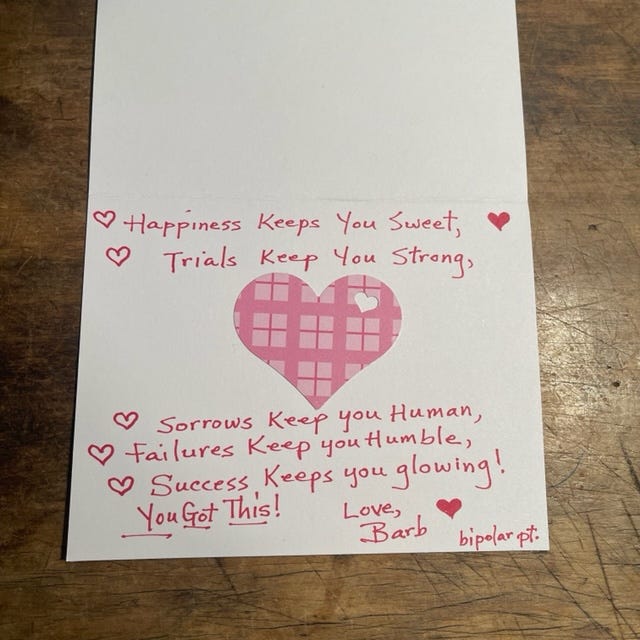 Happiness Keeps You Sweet,
Trials Keep You Strong,
Sorrows Keep you Human,
Failures Keep you Humble,
Success Keeps you glowing!
You Got This!
Love,
Barb
bipolar pt.